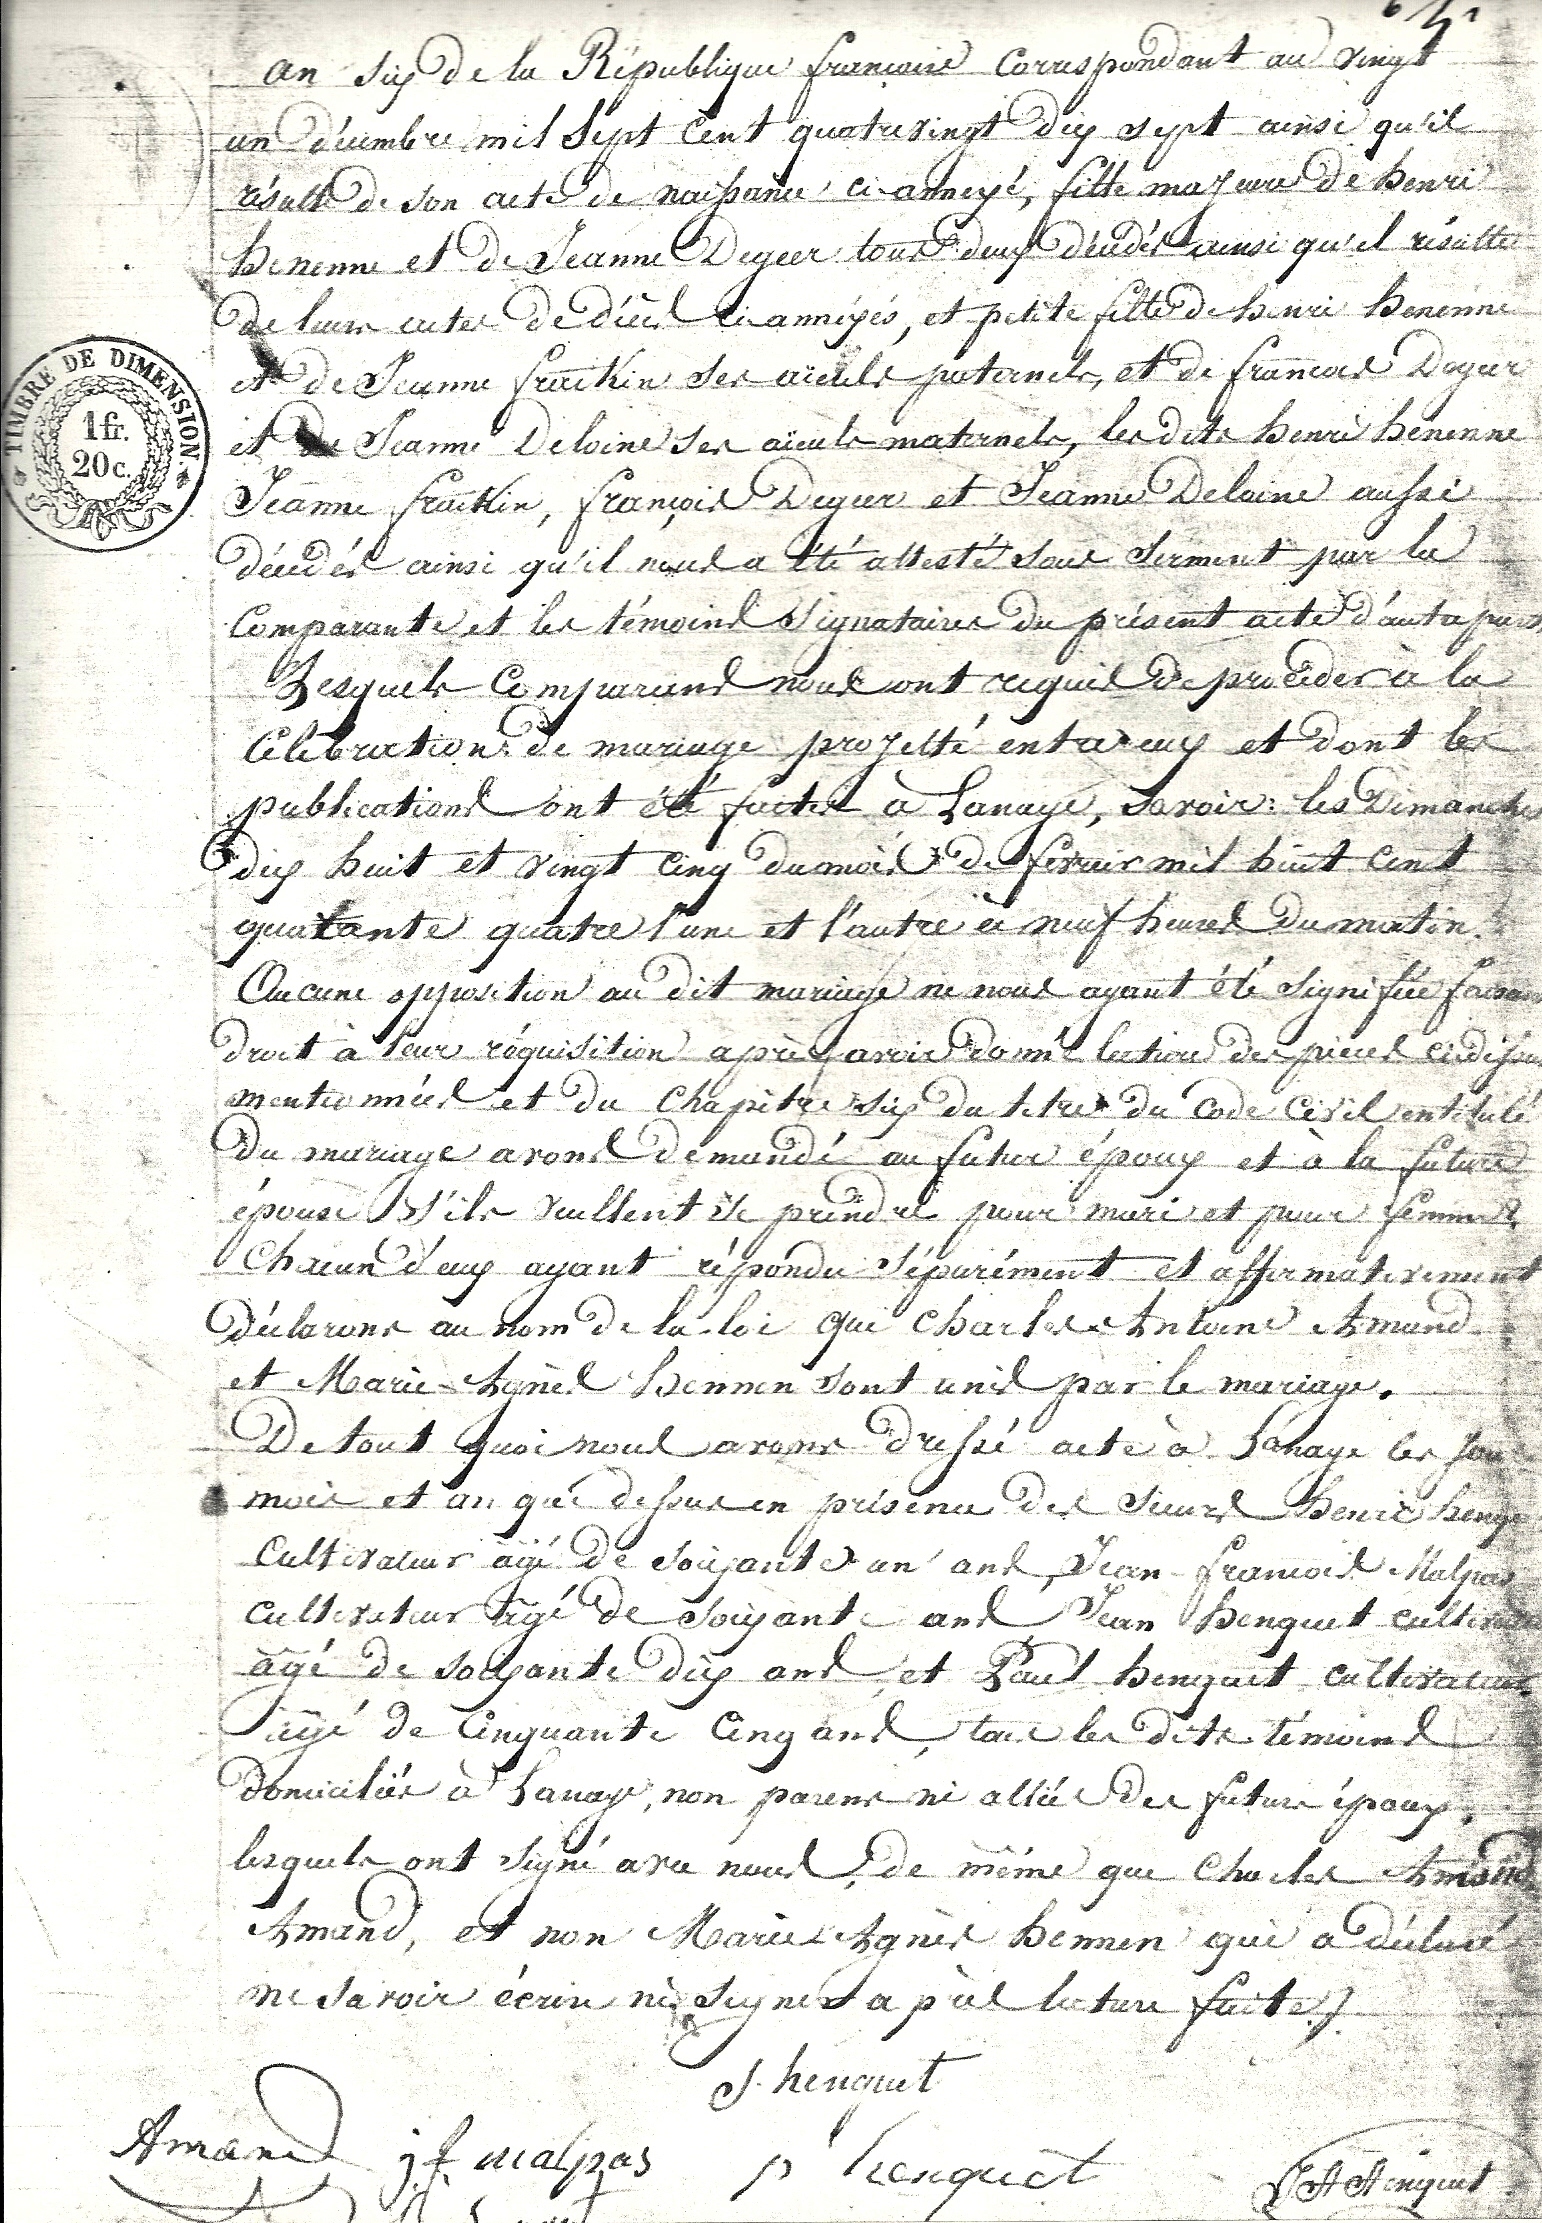 an six de la République francoise Correspondant au vingt
un décembre mil Sept Cent quatrevingt dix sept ainsi qu'il
résulte de son acte de naissance ci-annexé, fille majeure de henri
henenne et de Jeanne Degeer tous deux décédés ainsi qu'il résulte
de leurs actes de décès ci annéxés, et petite fille de henri henenne
et de Jeanne fraikin ses aïeuls paternels, et de francois Degeer
et de Jeanne Deloine ses aïeuls maternels, les dits henri henenne
TIMBRE DE DIMENSION.
1 fr.
20 c.
Jeanne fraikin, françois Degeer et Jeanne Deloine aussi
décédés ainsi qu'il nous a été attesté sous serment par la
Comparante et les témoins Signataires du présent acte d'autre part
Lesquels Comparans nous ont requis de procéder à la
Célébration de mariage projetté entr'eux et dont les
publications ont été faites à Lanaye, savoir: les Dimanches
dix huit et vingt cinq du mois de fevrier mil huit Cent
quarante quatre l'une et l'autre à neuf heures du matin.
Aucune opposition au dit mariage ne nous ayant été signifiée faisant
droit à leur réquisition après avoir donné lecture des pièces cidessus
mentionnées et du Chapitre six du titre du Code Civil entitulé
Du mariage avons demandé au futur époux et à la future
épouse s'ils veullent se prendre pour mari et pour femme,
Chacun d'eux ayant répondu séparément et affirmativement
déclarons au nom de la loi que Charles Antoine Amand
et Marie-Agnès hennen sont unis par le mariage.
De tout quoi nous avons dressé acte à Lanaye les jour
mois et an que dessus en présence des sieurs henri
Cultivateur âgé de soixante un ans, Jean francois Malpas
cultivateur âgé de soixante ans Jean henquet cultivateur
âgé de soixante dix ans, et Paul henquet cultivateur
âgé de Cinquante Cinq ans, tous les dits témoins
domiciliés à Lanaye, non parens ni alliés des futurs époux,
lesquels ont signé avec nous, de même que Charles
Amand, et non Marie Agnès hennen qui a déclaré
ne savoir écrire ni signer après lecture faite./.
J. henquet
Amand j f malpas p henquet
Henquet